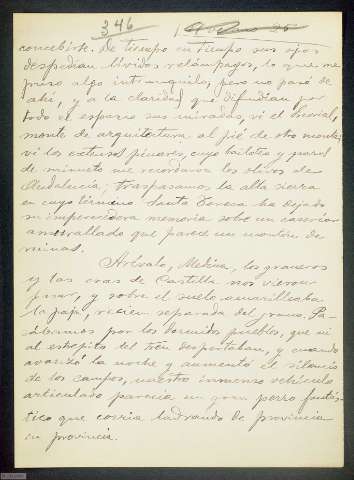 346
concebirse. De tiempo en tiempo sus ojos
despedían lívidos relámpagos, lo que me
puso algo intranquilo, pero no pasó de
ahí, y a la claridad que difundían por
todo el espacio sus miradas, vi el Escorial,
monte de arquitectura al pié de otro monte;
vi los extensos pinares, cuyo
de minueto me recordaron los olivos de
Andalucía; traspasamos la alta sierra
en cuyo término Santa Teresa ha dejado
su imperecedera memoria sobre un caseríor
amurallado que parece un montón de
ruinas.
Arévalo, Medina, los graneros
y las eras de Castilla nos vieron
pasar, y sobre el suelo amarilleaba
la paja, recien separada del grano. Pa-
sábamos por los dormidos pueblos, que ni
al estrépito del tren despertaban, y cuando
avanzó la noche y aumentó el silencio
de los campos, nuestro inmenso vehículo
articulado parecía un gran perro fantás-
tico que corría ladrando de provincia
en provincia.